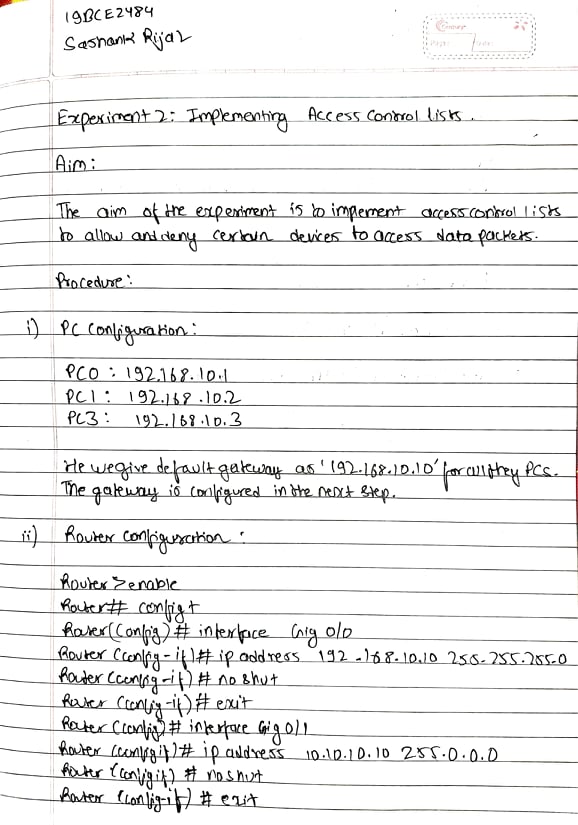 19BCE2484
Sashank Rijal
Experiment 2: Implementing Access Control lists.
Aim:
The aim of the experiment is to implement access control lists
to allow and deny certain devices to access data packets.
Procedure:
i) PC Configuration:
PC0 : 192.168.10.1
PC1 : 192.168.10.2
PC3 : 192.168.10.3
He we give default gateway as '192.168.10.10' for all they PCs.
The gateway is configured in the next step.
ii) Router configuration :
Router >enable
Router# config t
Router(Config)# interface Gig 0/0
Router (config-if)# ip address 192.168.10.10 255.255.255.0
Router (config-if)# no shut
Router (config-if)# exit
Router (config)# interface Gig 0/1
Router (config if)# ip address 10.10.10.10 255.0.0.0
Router (config if) # no shut
Router (config-if) # exit